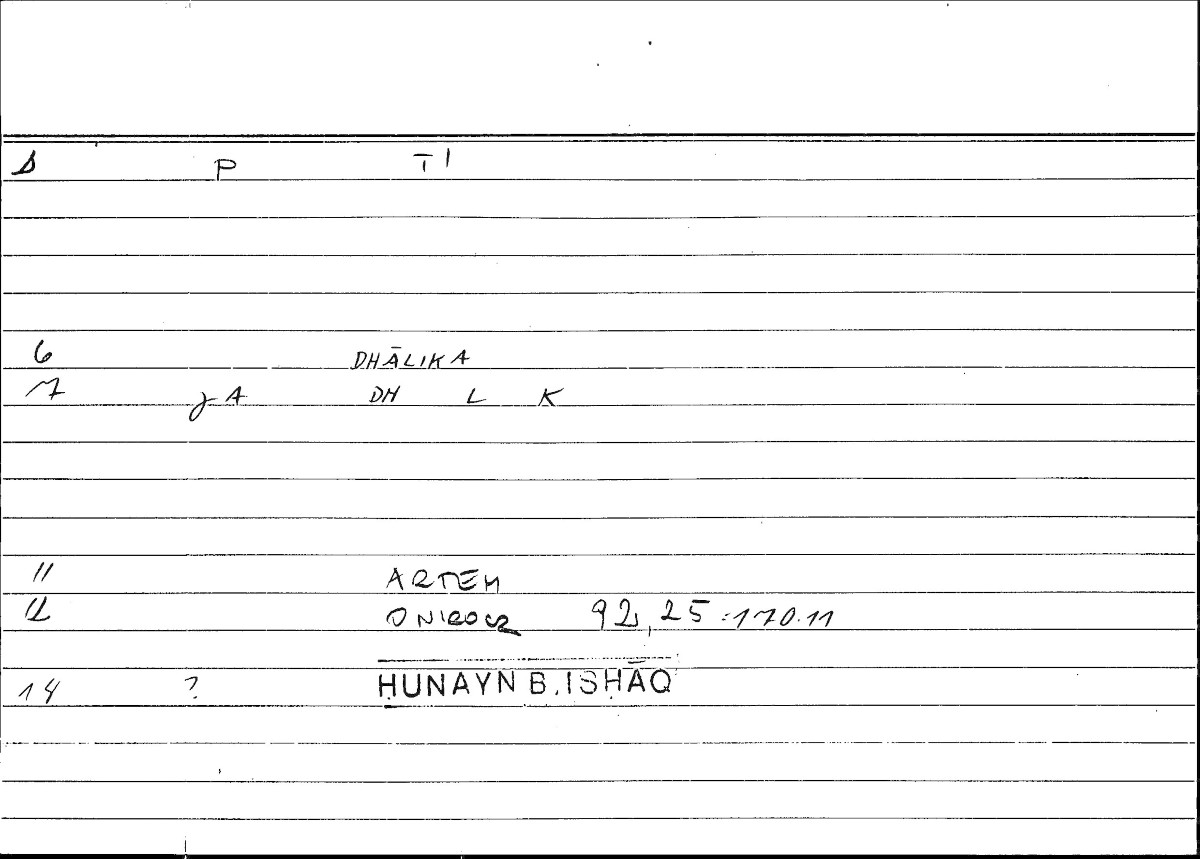 S P T1
6 DHĀLIKA
7 γA DH L K
11 ARTEM
12 ONIROCR 92,25:170.11
14 ? ḤUNAYN B.ISḤĀQ